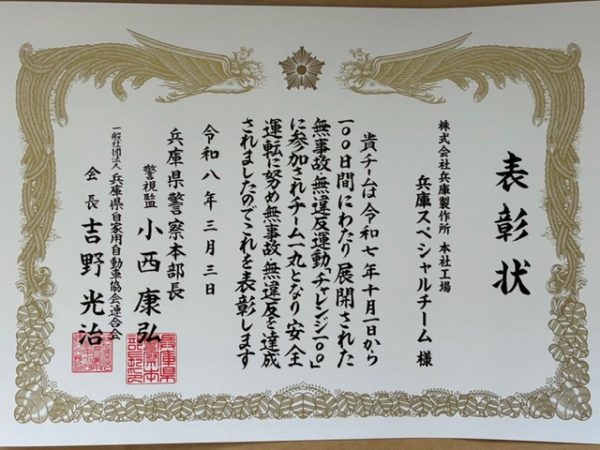 表彰状
株式会社兵庫製作所 本社工場
兵庫スペシャルチーム 様
貴チームは令和七年十月一日から
一〇〇日間にわたり展開された
無事故・無違反運動「チャレンジ一〇〇」
に参加されチーム一丸となり安全
運転に努め無事故・無違反を達成
されましたのでこれを表彰します
令和八年三月三日
兵庫県警察本部長
警視監 小西康弘
一般社団法人 兵庫県自家用自動車協会連合会
会長 吉野光治
兵庫県
警察本
部長印